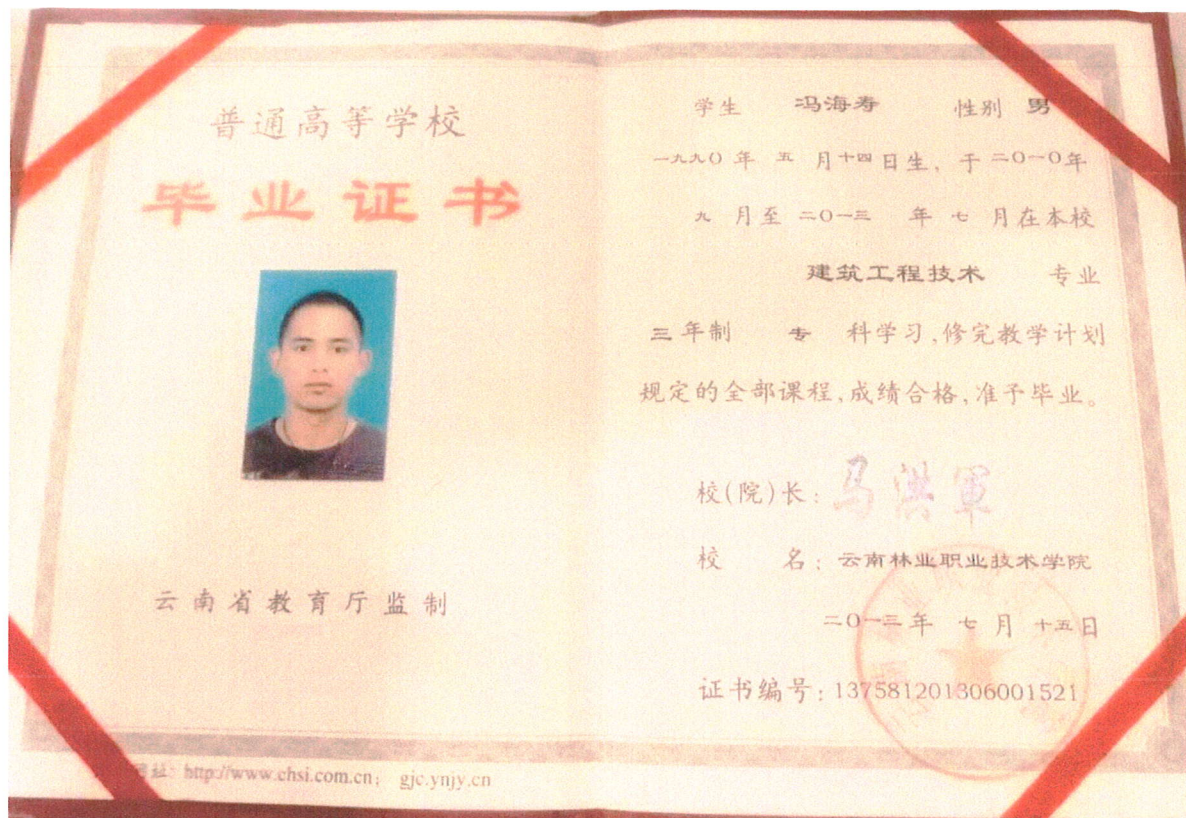 普通高等学校
毕业证书
云南省教育厅监制
网址: http://www.chsi.com.cn; gjc.ynjy.cn
学生 冯海寿 性别 男
一九九〇年 五 月十四日生, 于二〇一〇年
九 月至 二〇一三 年 七 月在本校
建筑工程技术 专业
三年制 专 科学习,修完教学计划
规定的全部课程,成绩合格,准予毕业。
校(院)长: 马洪军
校 名: 云南林业职业技术学院
二〇一三年 七 月 十五日
证书编号: 137581201306001521